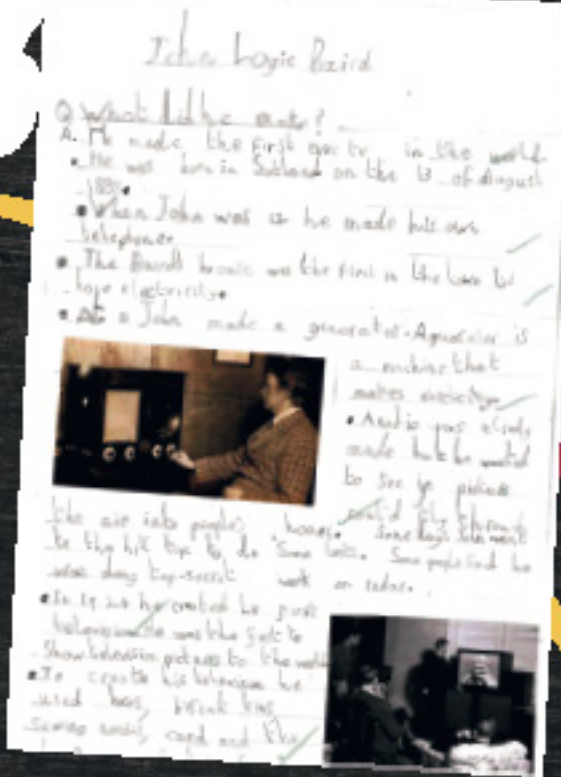 John Logie Baird
Q What did he make?
A. He made the first ever tv in the world
• He was born in Scotland on the 13 of August
• When John was 12 he made his own
telephone
• The Baird's house was the first in the town to
have electricity.
• John made a generator. A generator is
a machine that
makes
• A radio was already
made but he wanted
to see if pictures
could fly through
the air into people's homes. Some days John went
to the hill top to do some tests. Some people said he
was doing top-secret work on radar.
• In 1924 he created he first
television he was the first to
show television pictures to the world
• To create his television he
used
sewing card and the